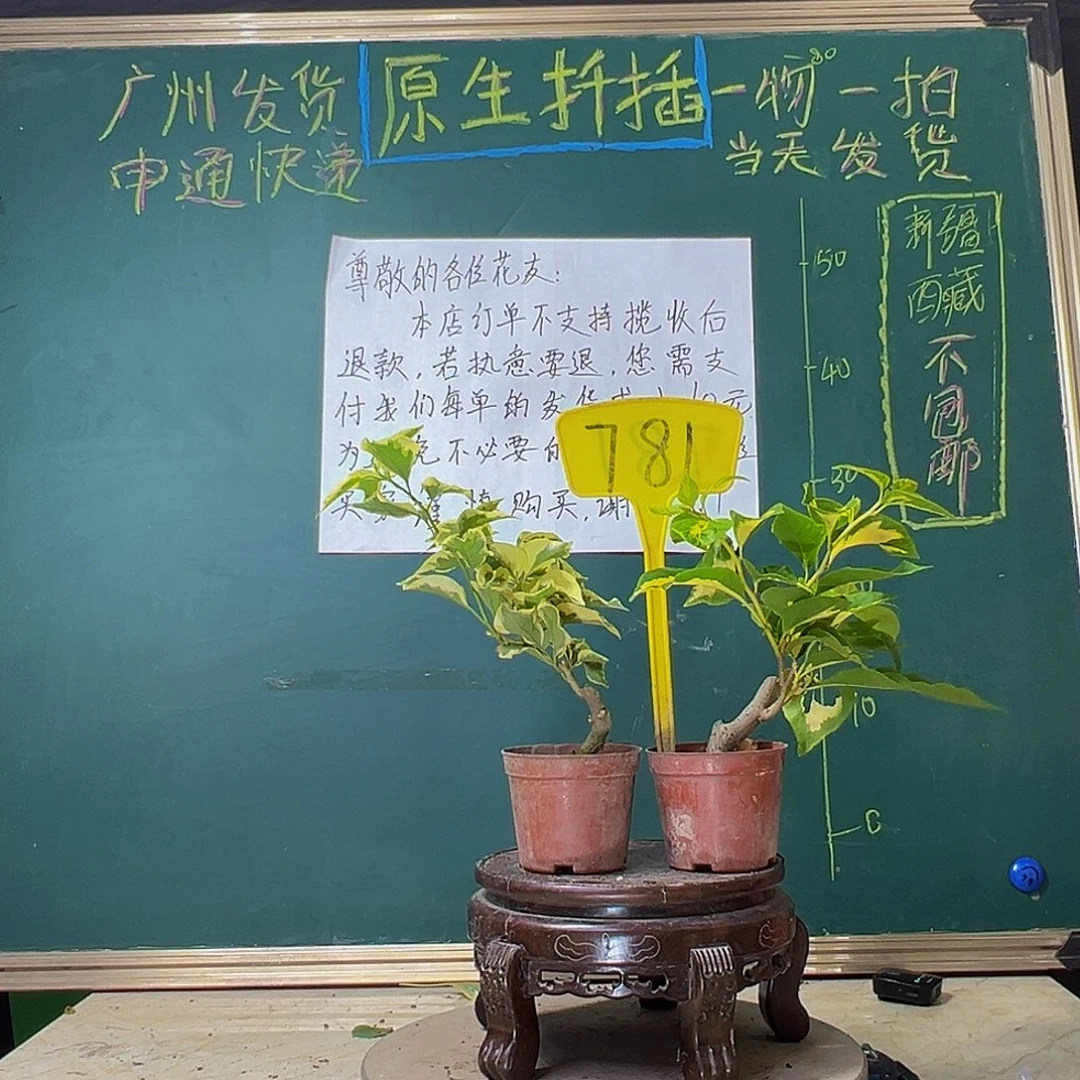 广州发货
申通快递
原生扦插
一物一拍
当天发货
新疆
西藏
不包邮
50
40
30
10
0
尊敬的各位花友:
本店订单不支持揽收后
退款,若执意要退,您需支
付我们每单的发货成本10元
为 免不必要的
买家谨慎购买,谢
781